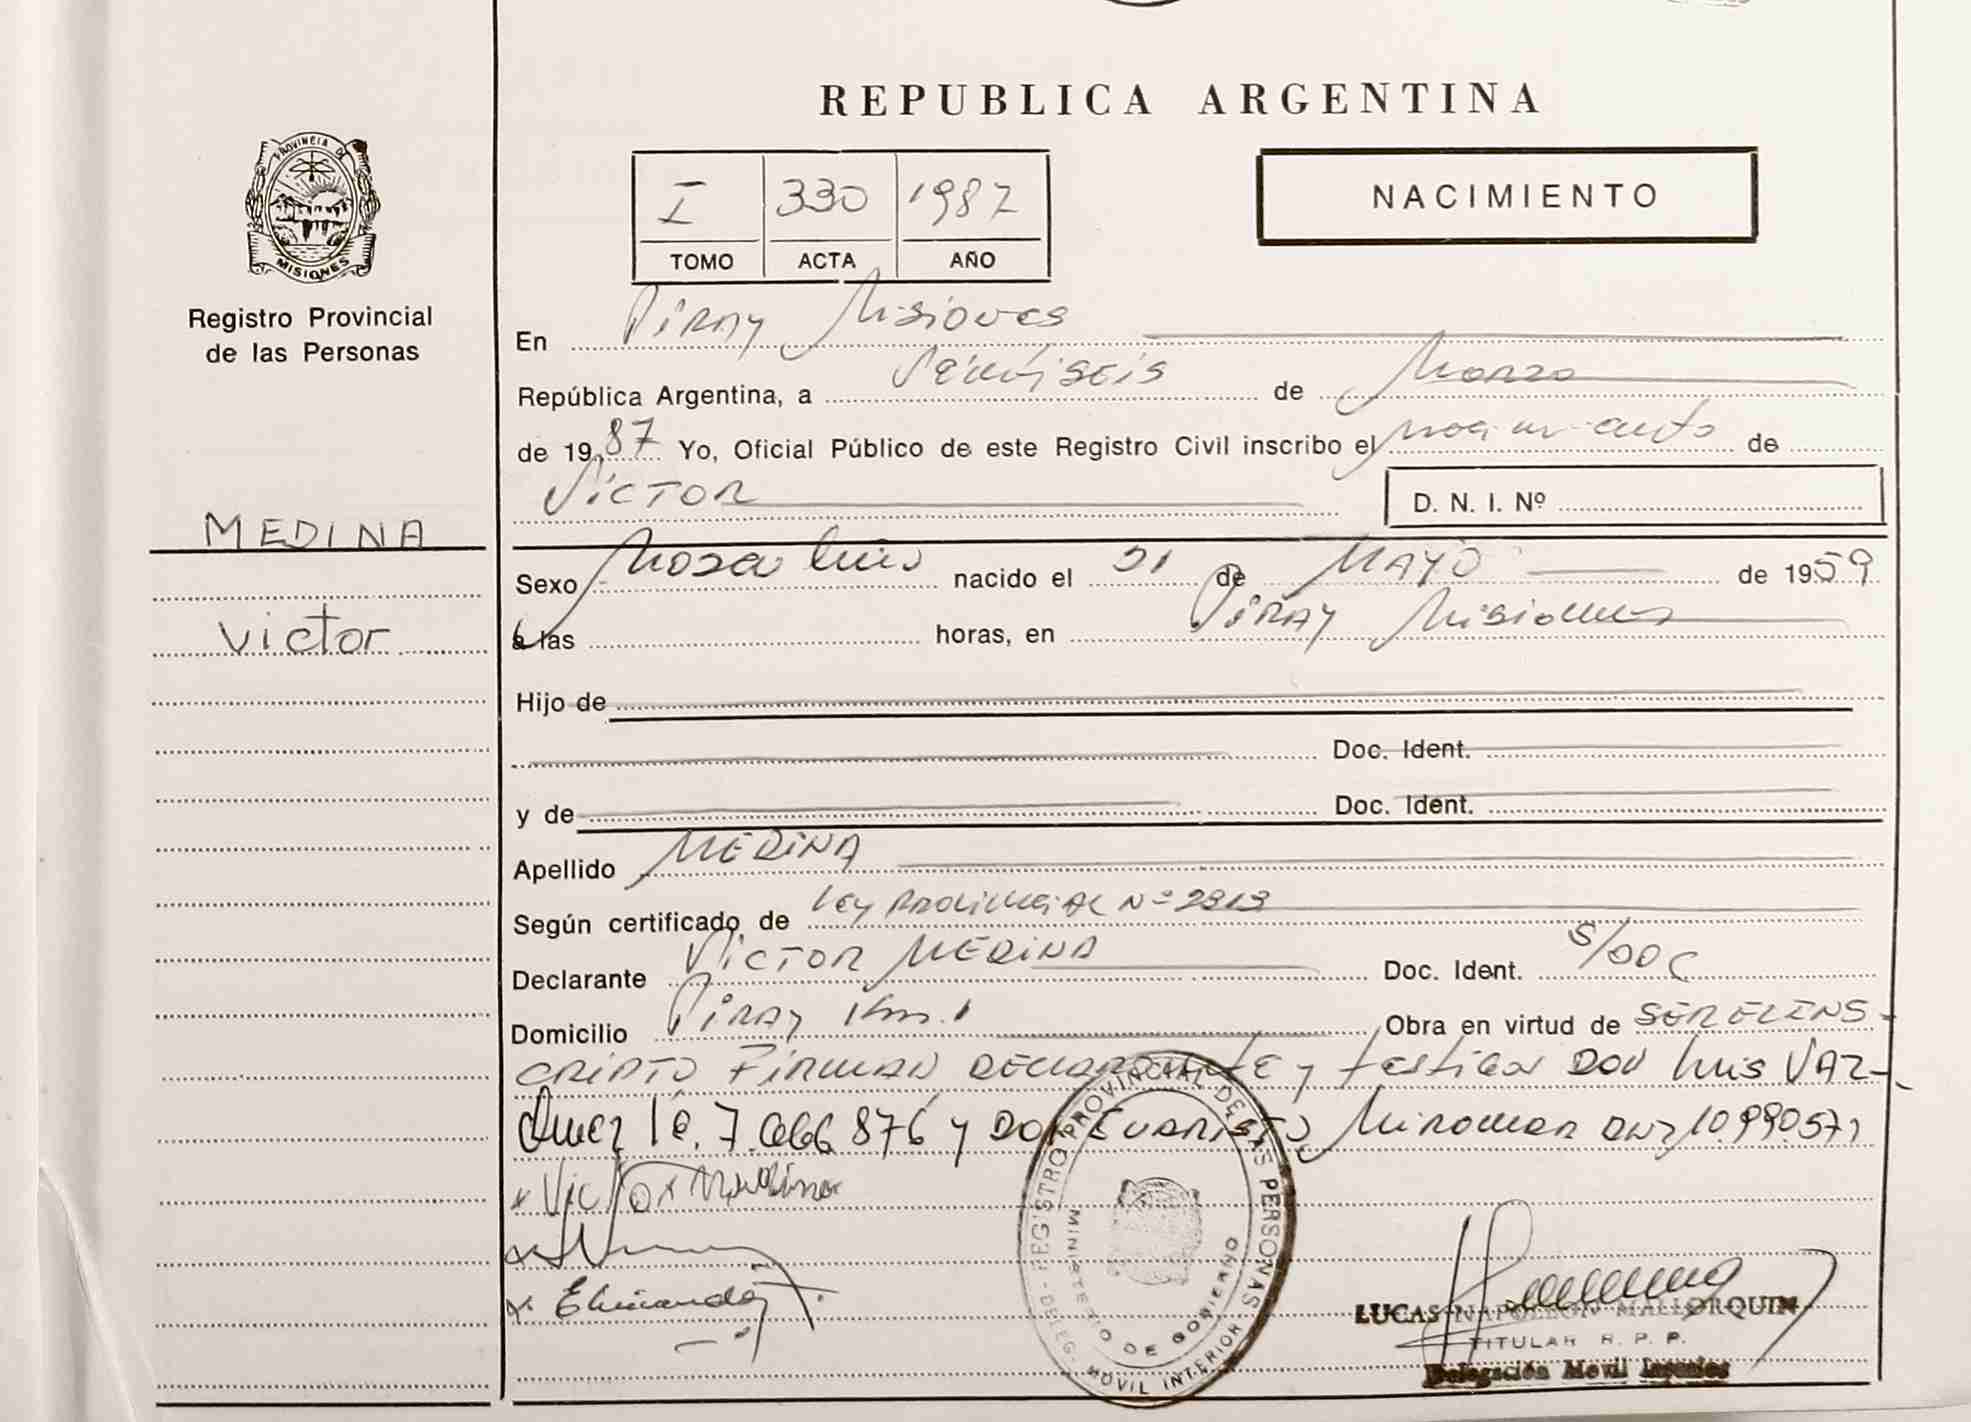 REPUBLICA ARGENTINA
PROVINCIA DE MISIONES
Registro Provincial
de las Personas
I 330 1987
TOMO ACTA AÑO
NACIMIENTO
En Piray Misiones
República Argentina, a Veintiseis de Marzo
de 1987 Yo, Oficial Público de este Registro Civil inscribo el nacimiento de
VICTOR
D. N. I. Nº
MEDINA
Victor
Sexo Masculino nacido el 31 de MAYO de 1959
a las horas, en Piray Misiones
Hijo de
Doc. Ident.
y de Doc. Ident.
Apellido MEDINA
Según certificado de Ley Provincial Nº 2313
Declarante VICTOR MEDINA Doc. Ident. S/DOC
Domicilio Piray Km. 1 Obra en virtud de SER E INS-
CRIPTO FIRMAN DECLARANTE y testigos DON Luis VAZ-
quez l e. 7.066 876 y DON EVARISTO DNI 10.990571
Victor Medina
REGISTRO PROVINCIAL DE LAS PERSONAS
DELEG. MOVIL INTERIOR
MINISTERIO DE GOBIERNO
LUCAS NAPOLEON MALLORQUIN
TITULAR R. P. P.
Delegación Movil